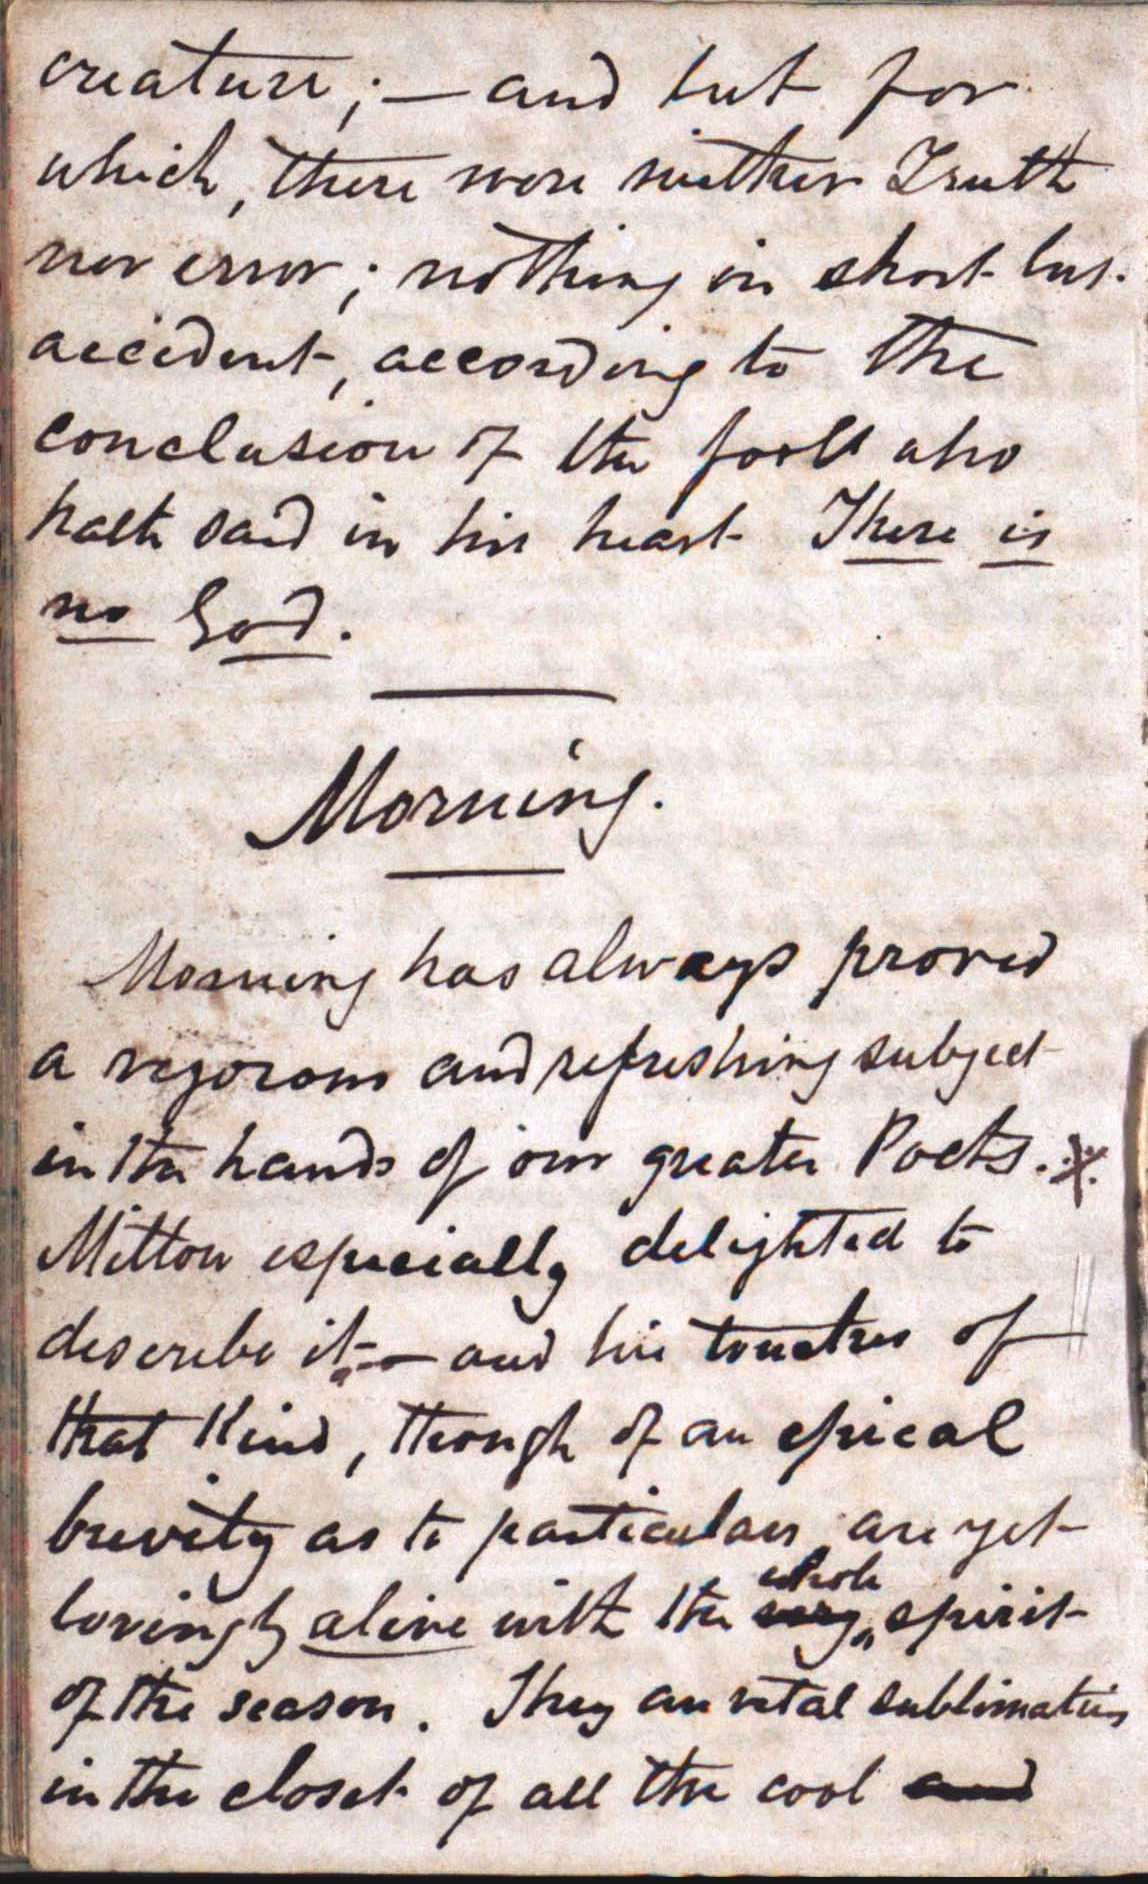 creature; — and but for
which, there were neither Truth
nor error; nothing in short but
accident, according to the
conclusion of the fool who
hath said in his heart There is
no God.
Morning.
Morning has always proved
a vigorous and refreshing subject
in the hands of our greater Poets.
Milton especially delighted to
describe it — and his touches of
that kind, though of an epical
brevity as to particulars are yet
whole
lovingly alive with the very spirit
of the season. They are vital sublimations
in the closet of all the cool and